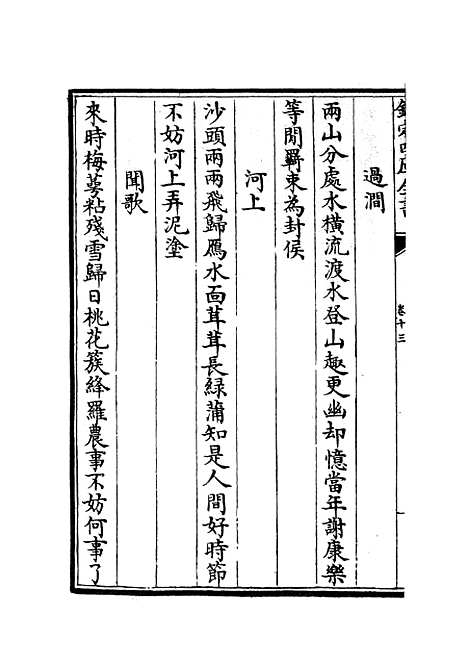 欽定四庫全書
卷十三
過澗
兩山分處水橫流渡水登山趣更幽却憶當年謝康樂
等閒羇束為封侯
河上
沙頭兩兩飛歸鴈水面茸茸長緑蒲知是人間好時節
不妨河上弄泥塗
聞歌
來時梅萼粘殘雪歸日桃花簇絳羅農事不妨何事了